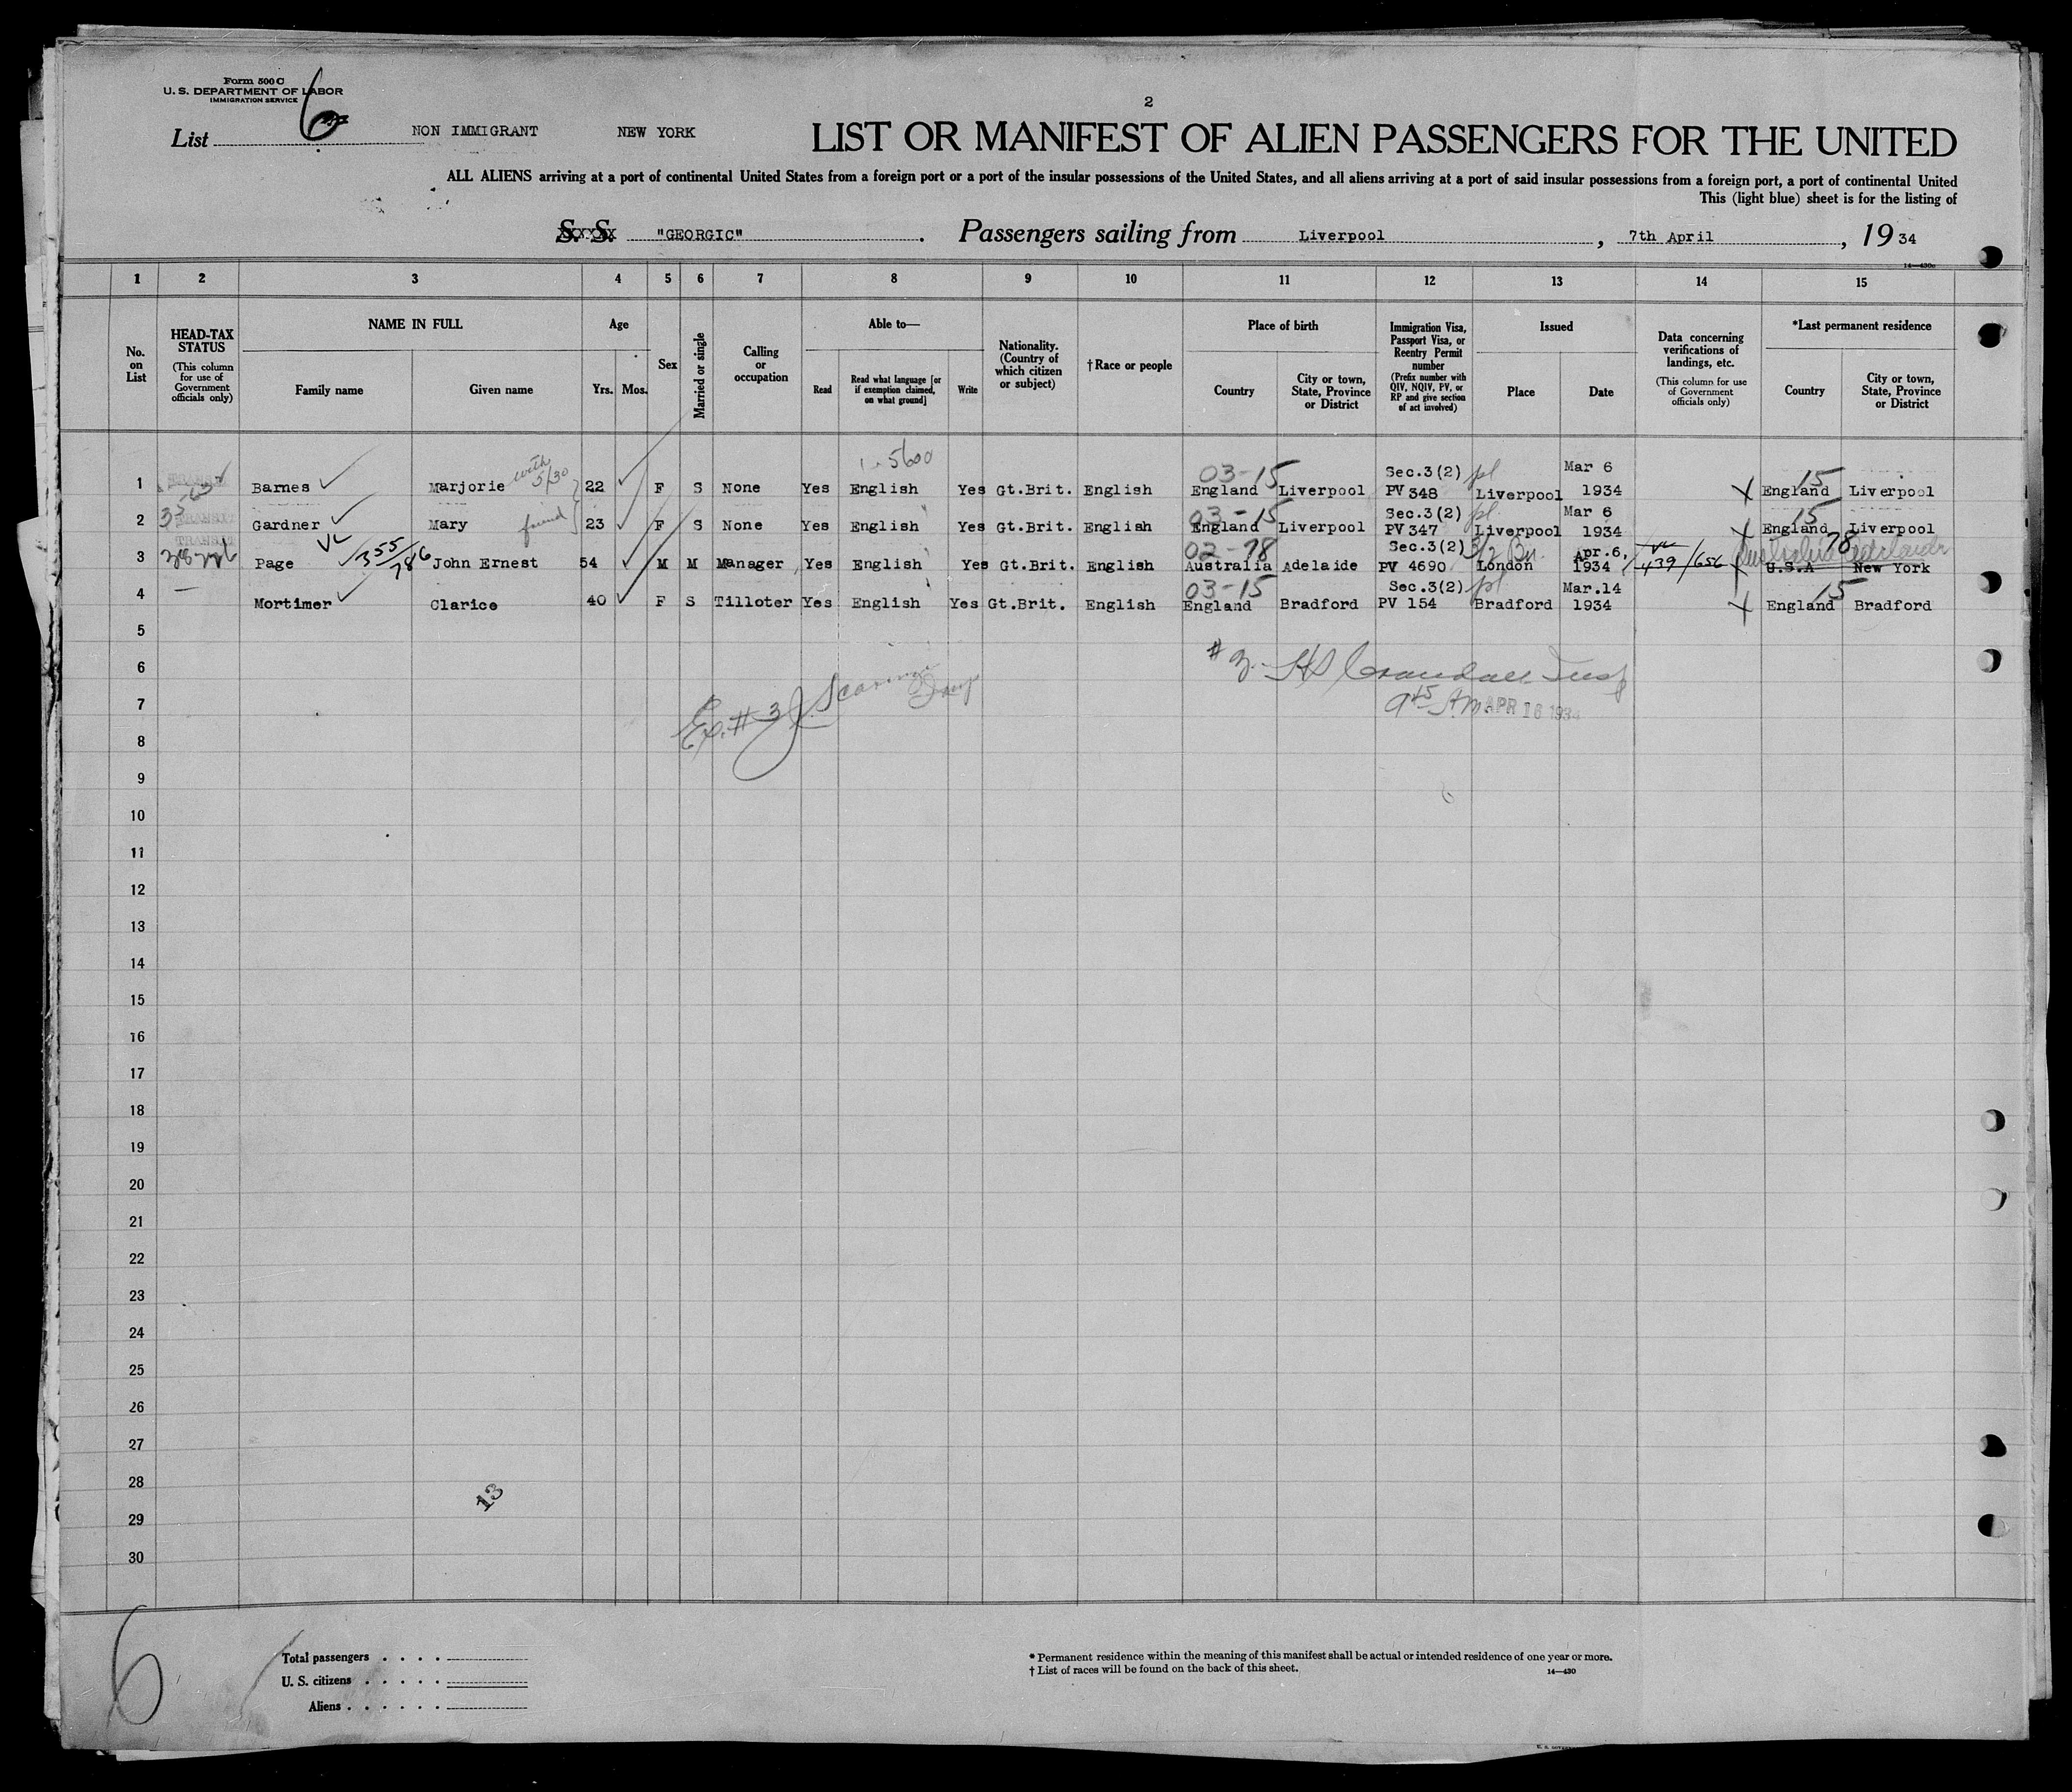 Form 500 C
U. S. DEPARTMENT OF LABOR
IMMIGRATION SERVICE
2
List 6 NON IMMIGRANT NEW YORK LIST OR MANIFEST OF ALIEN PASSENGERS FOR THE UNITED
ALL ALIENS arriving at a port of continental United States from a foreign port or a port of the insular possessions of the United States, and all aliens arriving at a port of said insular possessions from a foreign port, a port of continental United
This (light blue) sheet is for the listing of
S. S. "GEORGIC". Passengers sailing from Liverpool, 7th April, 1934
14—430c
1 2 3 4 5 6 7 8 9 10 11 12 13 14 15
No. on List
HEAD-TAX STATUS
(This column for use of Government officials only)
NAME IN FULL
Family name Given name
Age
Yrs. Mos.
Sex
Married or single
Calling or occupation
Able to—
Read
Read what language [or if exemption claimed, on what ground]
Write
Nationality. (Country of which citizen or subject)
†Race or people
Place of birth
Country
City or town, State, Province or District
Immigration Visa, Passport Visa, or Reentry Permit number
(Prefix number with QIV, NQIV, PV, or RP and give section of act involved)
Issued
Place Date
Data concerning verifications of landings, etc.
(This column for use of Government officials only)
*Last permanent residence
Country
City or town, State, Province or District
5600
with 5/30
03-15 Sec.3(2) pl Mar 6 15
1 Barnes Marjorie 22 F S None Yes English Yes Gt.Brit. English England Liverpool PV 348 Liverpool 1934 X England Liverpool
03-15 Sec.3(2) pl. Mar 6 15
2 TRANSIT Gardner Mary found 23 F S None Yes English Yes Gt.Brit. English England Liverpool PV 347 Liverpool 1934 X England Liverpool
TRANSIT 355/786 02-78 Sec.3(2) Apr.6, 439/656 Australia 78 Adelaide
3 Page John Ernest 54 M M Manager Yes English Yes Gt.Brit. English Australia Adelaide PV 4690 London 1934 U.S.A New York
03-15 Sec.3(2) pl Mar.14 15
4 — Mortimer Clarice 40 F S Tilloter Yes English Yes Gt.Brit. English England Bradford PV 154 Bradford 1934 X England Bradford
5
6
7
Ex. #3 J.
945 A.M. APR 16 1934
8
9
10
11
12
13
14
15
16
17
18
19
20
21
22
23
24
25
26
27
28
13
29
30
6
Total passengers . . . .
U. S. citizens . . . . .
Aliens . . . . . .
* Permanent residence within the meaning of this manifest shall be actual or intended residence of one year or more.
† List of races will be found on the back of this sheet.
14—430